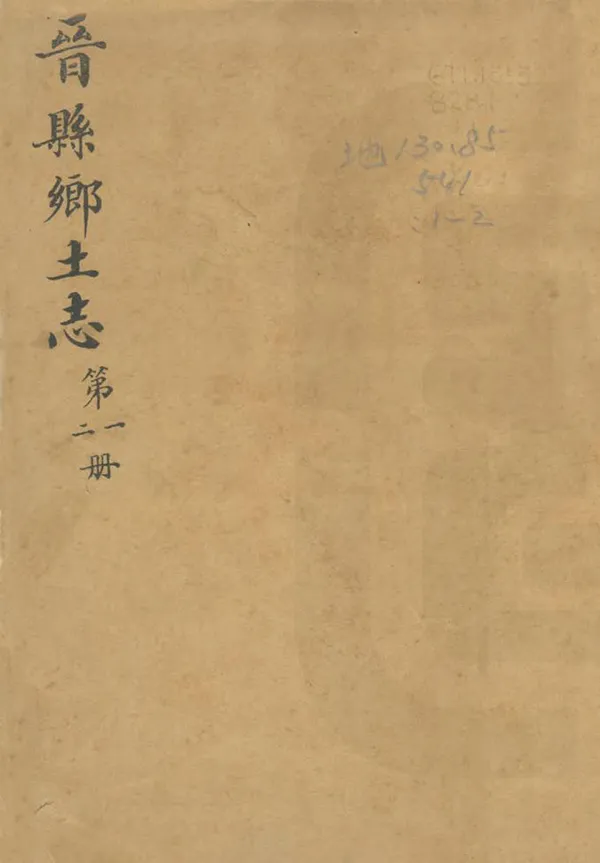 晉縣鄉土志
第一二册
地130.85
541
:1-2